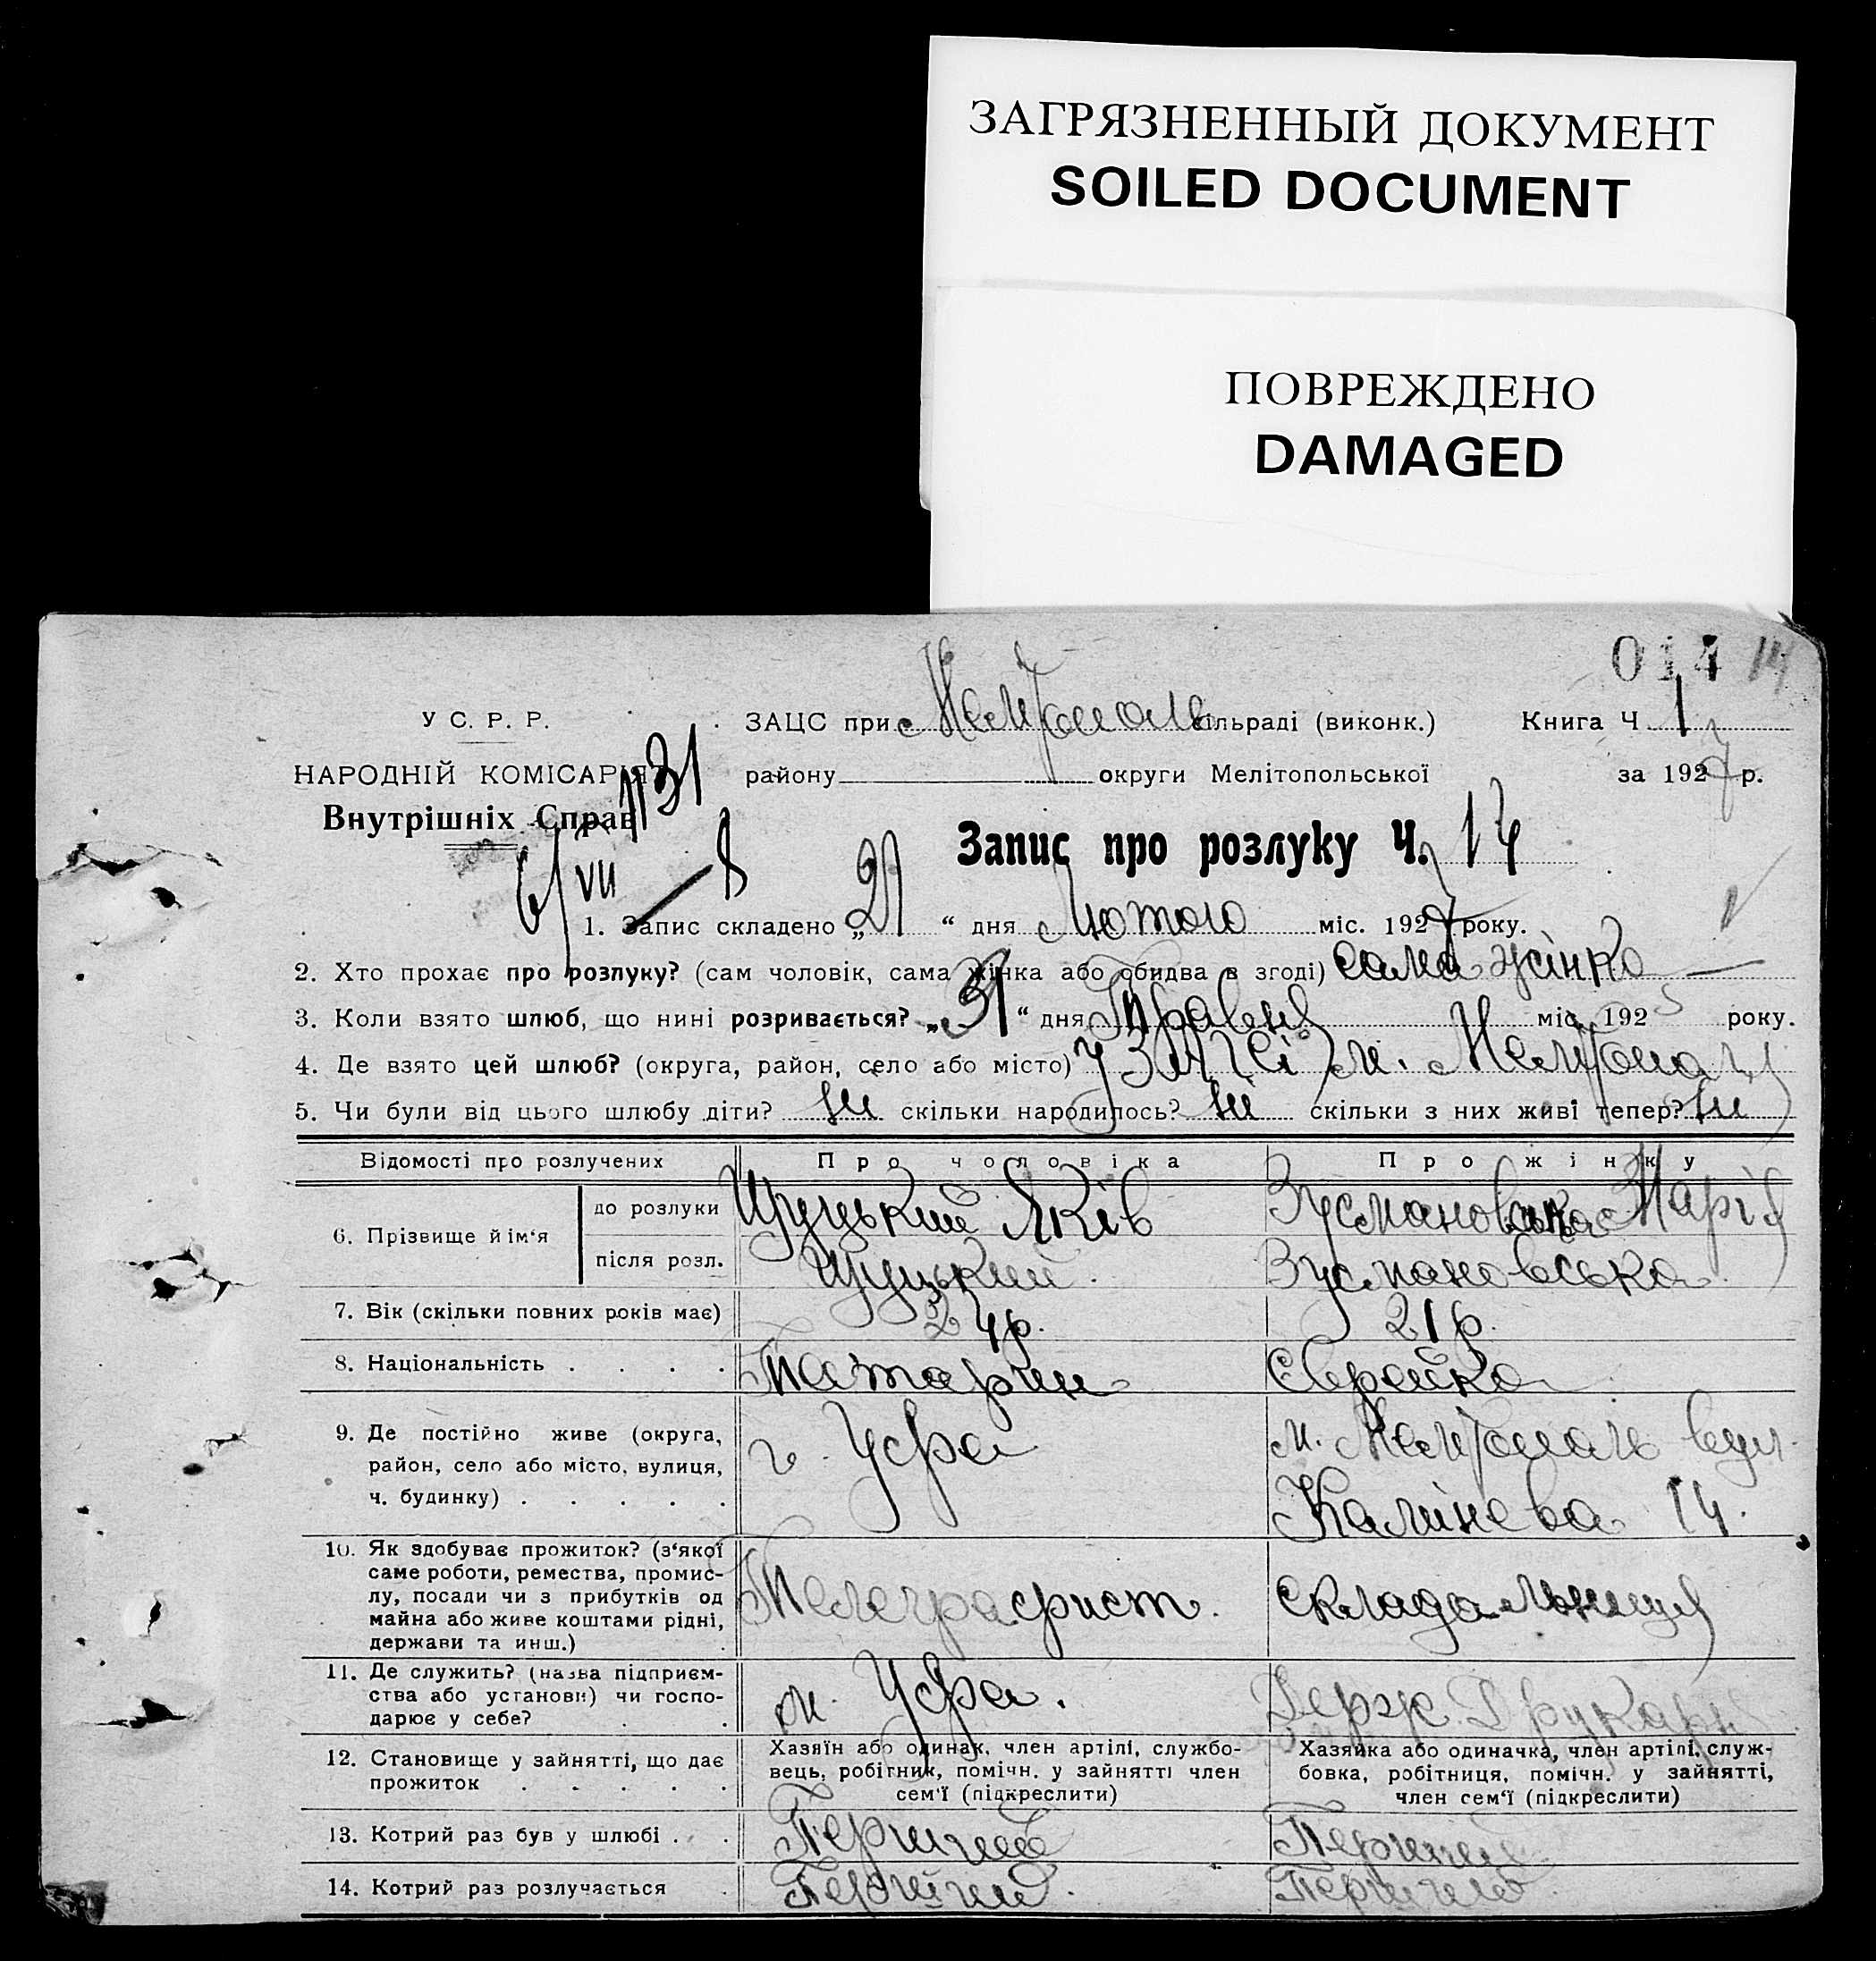 ЗАГРЯЗНЕННЫЙ ДОКУМЕНТ
SOILED DOCUMENT
ПОВРЕЖДЕНО
DAMAGED
014 14
У С. Р. Р.
ЗАЦС при Мелітополь сільраді (виконк.) Книга Ч 1
НАРОДНІЙ КОМІСАРІЯТ
Внутрішніх Справ
району округи Мелітопольської за 1927 р.
Запис про розлуку Ч. 14
6/VII
1. Запис складено „21“ дня Лютого міс. 1927 року.
2. Хто прохає про розлуку? (сам чоловік, сама жінка або обидва в згоді) сама жінка
3. Коли взято шлюб, що нині розривається? „31“ дня Травня міс. 1925 року.
4. Де взято цей шлюб? (округа, район, село або місто) у ЗАГСі м. Мелітополі
5. Чи були від цього шлюбу діти? ні скільки народилось? ні скільки з них живі тепер? ні
Відомості про розлучених Про чоловіка Про жінку
6. Прізвище й ім‘я
до розлуки Яків Зусмановська Марія
після розл. Зусмановська
7. Вік (скільки повних років має) 24 р. 21 р.
8. Національність . . . . Татарин Єврейка
9. Де постійно живе (округа,
район, село або місто, вулиця,
ч. будинку) . . . . .
г. Уфа
м. Мелітополь вул.
Калінева 14.
10. Як здобуває прожиток? (з‘якої
саме роботи, ремества, промис-
лу, посади чи з прибутків од
майна або живе коштами рідні,
держави та инш.) .
Телеграфист. складальниця
11. Де служить? (назва підприєм-
ства або установи) чи госпо-
дарює у себе? . .
м. Уфа. Держ. Друкарн
12. Становище у зайнятті, що дає
прожиток . . . . .
Хазяїн або одинак, член артілі, службо-
вець, робітник, помічн. у зайнятті член
сем‘ї (підкреслити)
Хазяйка або одиначка, член артілі, служ-
бовка, робітниця, помічн. у зайнятті,
член сем‘ї (підкреслити)
13. Котрий раз був у шлюбі . . Перший Перший
14. Котрий раз розлучається . Перший. Перший.